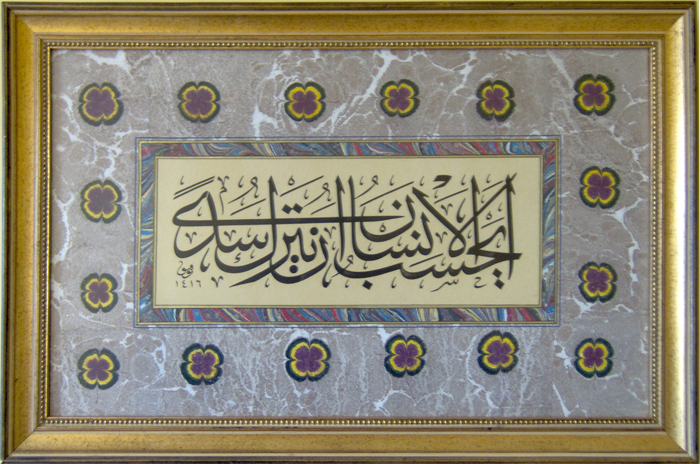 ايحسب الانسان ان يترك سدى
١٤١٦